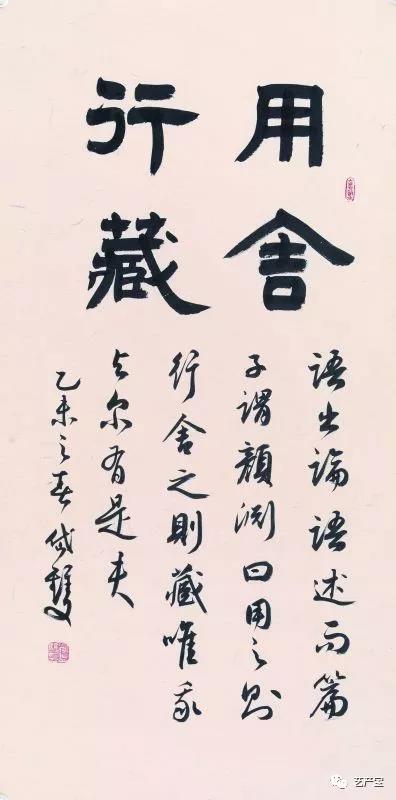 用舍
行藏
语出论语述而篇
子谓颜渊曰用之则
行舍之则藏唯我
与尔有是夫
乙未之春
艺产宝